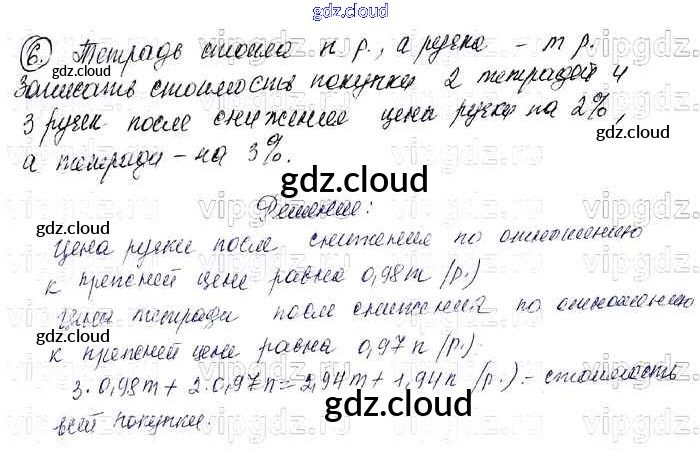 gdz.cloud
6. Тетрадь стоила n р., а ручка - m р.
Записать стоимость покупки 2 тетрадей и
3 ручек после снижения цены ручки на 2%,
а тетради - на 3%.
gdz.cloud
Решение:
Цена ручки после снижения по отношению
к прежней цене равна 0,98m (р.)
Цена тетради после снижения по отношению
к прежней цене равна 0,97n (р.)
3·0,98m + 2·0,97n = 2,94m + 1,94n (р.) - стоимость
всей покупки.
gdz.cloud